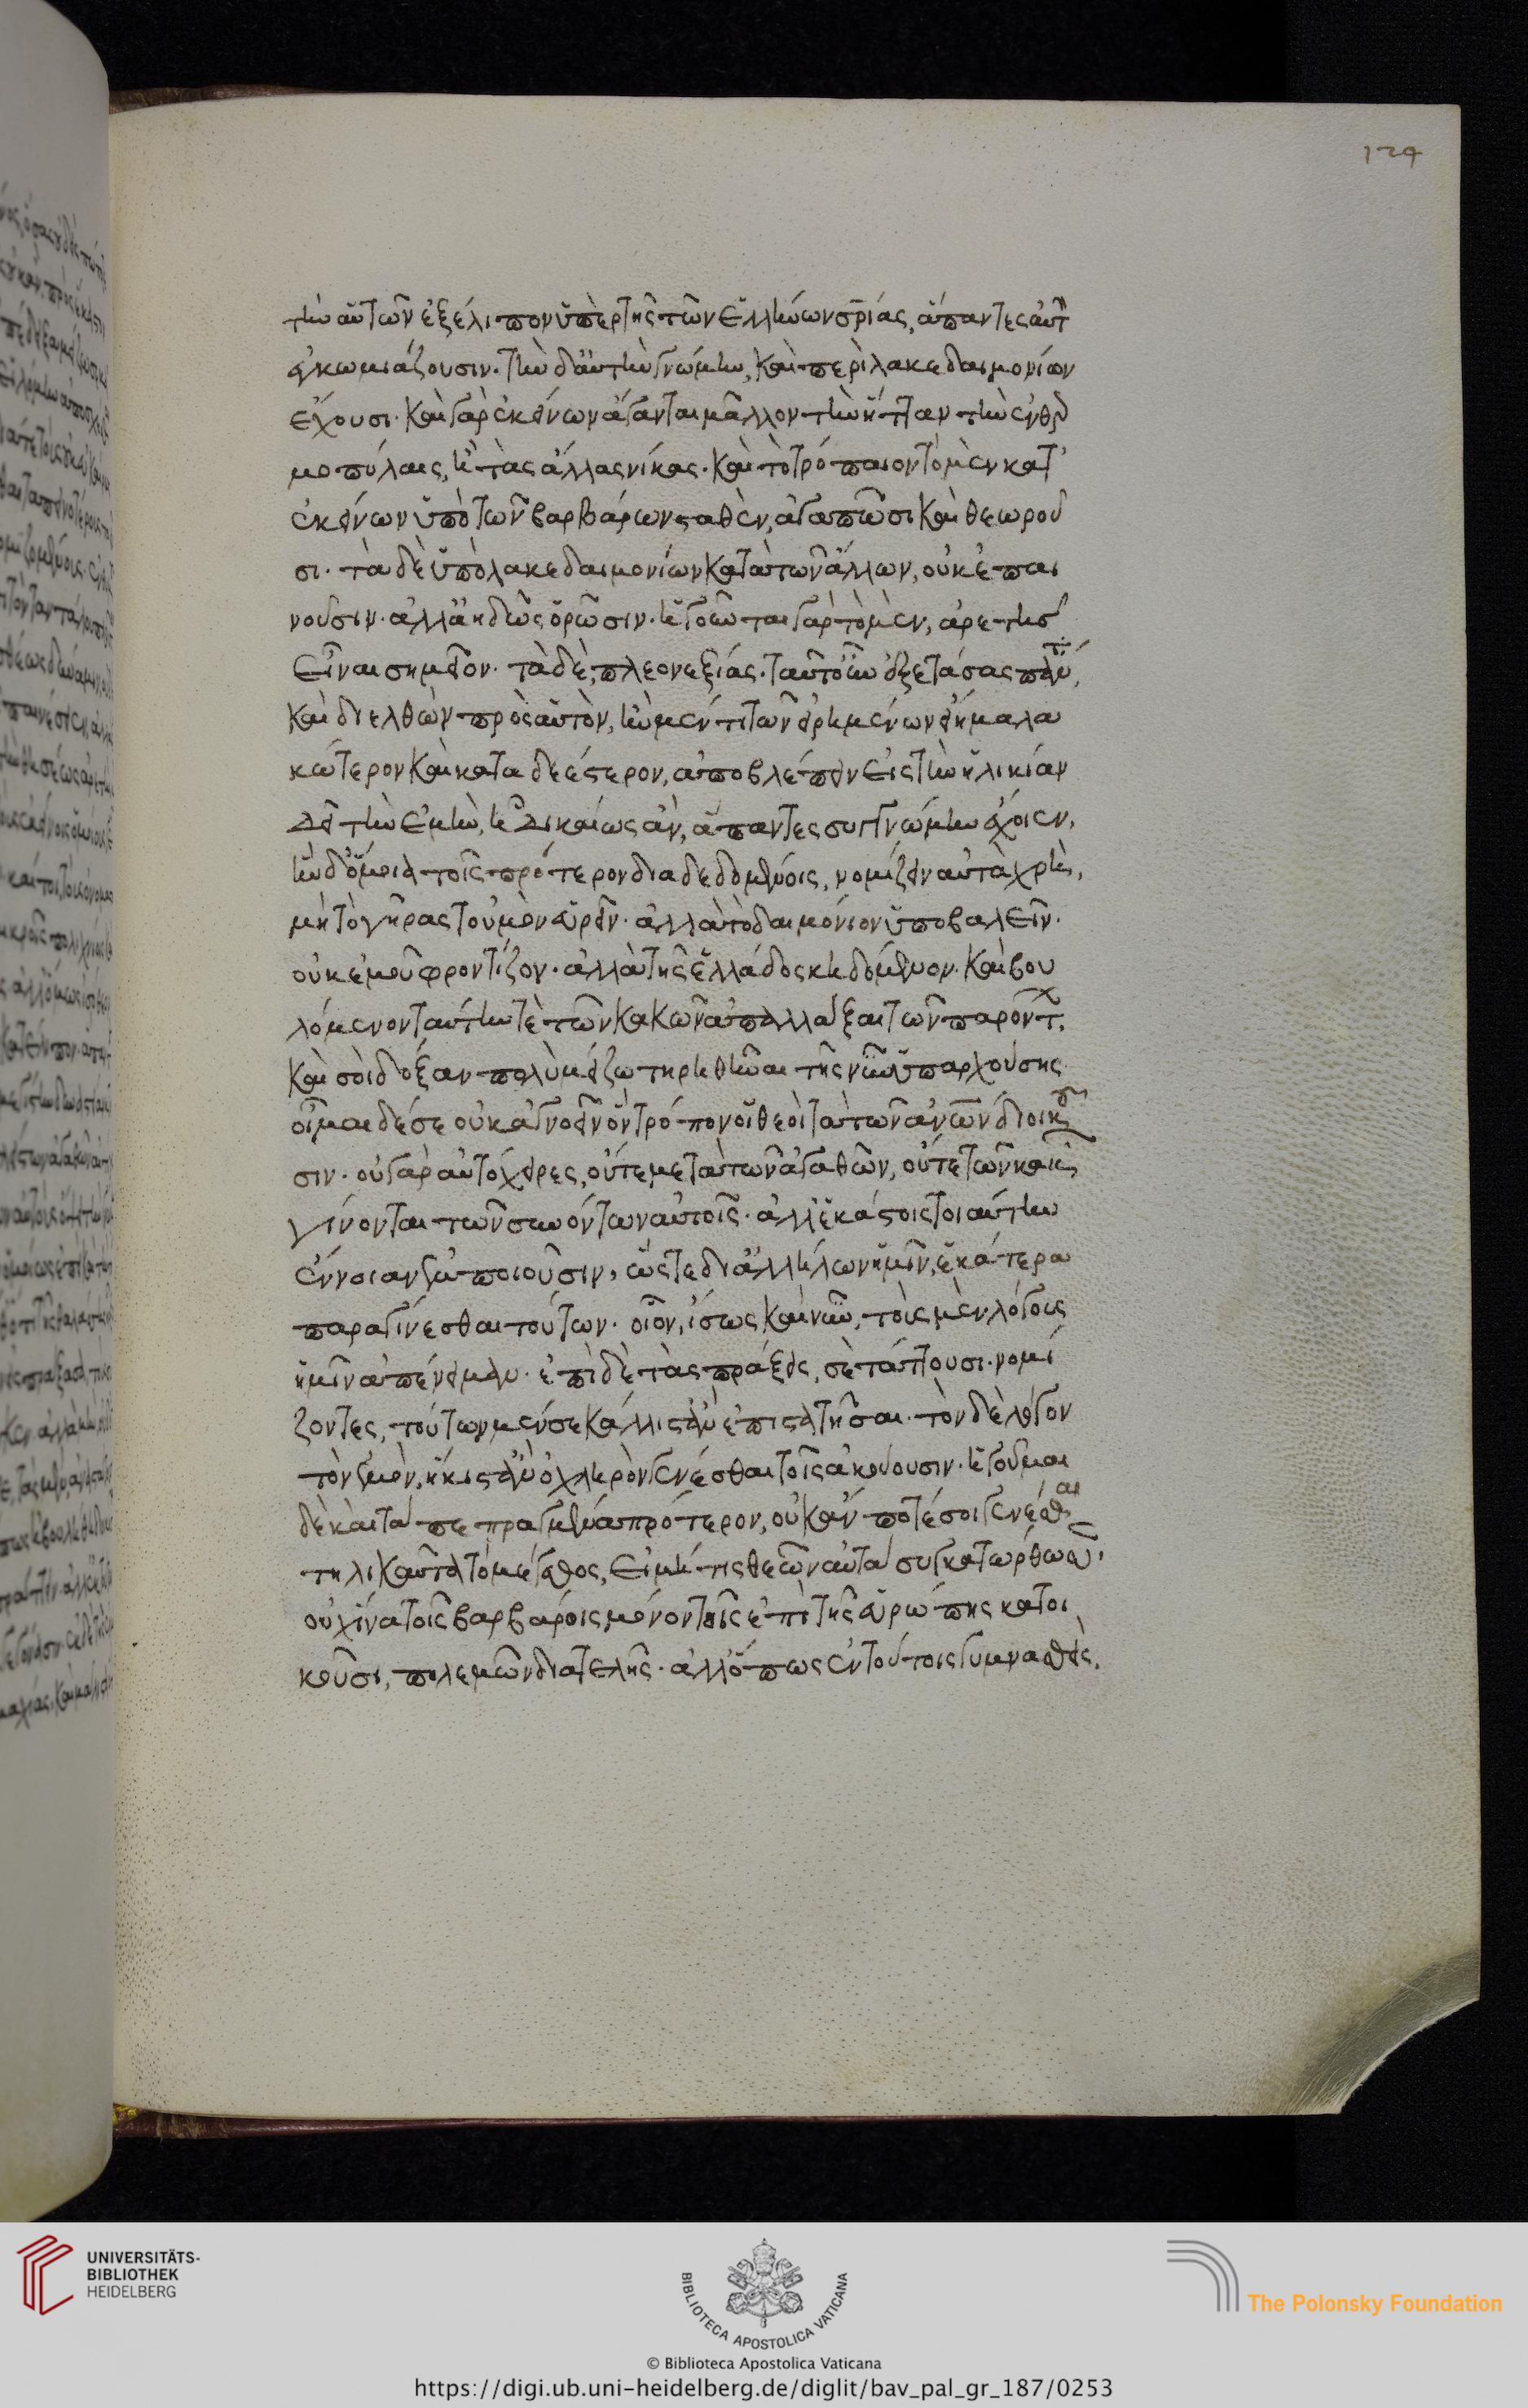 124
τὴν αὑτῶν ἐξέλιπον ὑπὲρ τῆς τῶν ἑλλήνων σρίας, ἅπαντες αὐτ
ἐγκωμιάζουσιν. τὴν δ' αὐτὴν γνώμην, καὶ περὶ λακεδαιμονίων
ἔχουσι. καὶ γὰρ ἐκείνων ἄγανται μᾶλλον τὴν ἧτταν τὴν ἐν θερ
μοπύλαις, ἢ τὰς ἄλλας νίκας. καὶ τὸ τρόπαιον τὸ μὲν κατ'
ἐκείνων ὑπὸ τῶν βαρβάρων σταθὲν, ἀγαπῶσι καὶ θεωροῦ
σι. τὰ δὲ ὑπὸ λακεδαιμονίων κατὰ τῶν ἄλλων, οὐκ ἐπαι
νοῦσιν. ἀλλ' ἀηδῶς ὁρῶσιν. ἡγοῦνται γὰρ τὸ μὲν, ἀρετῆς
εἶναι σημεῖον. τὰ δὲ, πλεονεξίας. ταῦτ' οὖν ἐξετάσας πάντ,
καὶ διελθὼν πρὸς αὑτὸν, ἢν μέν τι τῶν εἰρημένων ᾖ μαλα
κώτερον καὶ καταδεέστερον, ἀποβλέπειν εἰς τὴν ἡλικίαν
δεῖ τὴν ἐμὴν, ᾗ δικαίως ἂν, ἅπαντες συγγνώμην ἔχοιεν,
ἢν δ' ὅμοια τοῖς πρότερον διαδεδομένοις, νομίζειν αὐτὰ χρὴ,
μὴ τὸ γῆρας τοὐμὸν εὑρεῖν. ἀλλὰ τὸ δαιμόνιον ὑποβαλεῖν.
οὐκ ἐμοῦ φροντίζον. ἀλλὰ τῆς ἑλλάδος κηδόμενον. καὶ βου
λόμενον ταύτην τὲ τῶν κακῶν ἀπαλλάξαι τῶν παρόντ.
καὶ σοὶ δόξαν πολὺ μείζω τηρηθῆναι τῆς νῦν ὑπαρχούσης
οἶμαι δέ σε οὐκ ἀγνοεῖν ὃν τρόπον οἱ θεοὶ τὰ τῶν ἀνων διοικοῦ
σιν. οὐ γὰρ αὐτόχειρες, οὔτε μετὰ τῶν ἀγαθῶν, οὔτε τῶν κακῶν
γίνονται τῶν συνόντων αὐτοῖς. ἀλλ' ἑκάστοις τοιαύτην
ἔννοιαν ἐμποιοῦσιν, ὥστε δι' ἀλλήλων ἡμῖν, ἑκάτερα
παραγίνεσθαι τούτων. οἷον, ἴσως καὶ νῦν, τοὺς μὲν λόγους
ἡμῖν ἀπένειμαν. ἐπὶ δὲ τὰς πράξεις, σὲ τάττουσι. νομί
ζοντες, τούτων μέν σε κάλλιστ' ἂν ἐπιστατῆσαι. τὸν δὲ λόγον
τὸν ἐμὸν, ἥκιστ' ἂν ὀχληρὸν γενέσθαι τοῖς ἀκούουσιν. ἡγοῦμαι
δὲ καὶ τὰ πεπραγμένα πρότερον, οὐκ ἄν ποτέ σοι γενέσθαι
τηλικαῦτα τὸ μέγεθος, εἰ μή τις θεῶν αὐτὰ συγκατώρθωσεν,
οὐχ ἵνα τοῖς βαρβάροις μόνον τοῖς ἐπὶ τῆς εὐρώπης κατοι
κοῦσι, πολεμῶν διατελῇς. ἀλλ' ὅπως ἐν τούτοις γυμνασθεὶς,
UNIVERSITÄTS-
BIBLIOTHEK
HEIDELBERG
BIBLIOTECA APOSTOLICA VATICANA
The Polonsky Foundation
© Biblioteca Apostolica Vaticana
https://digi.ub.uni-heidelberg.de/diglit/bav_pal_gr_187/0253